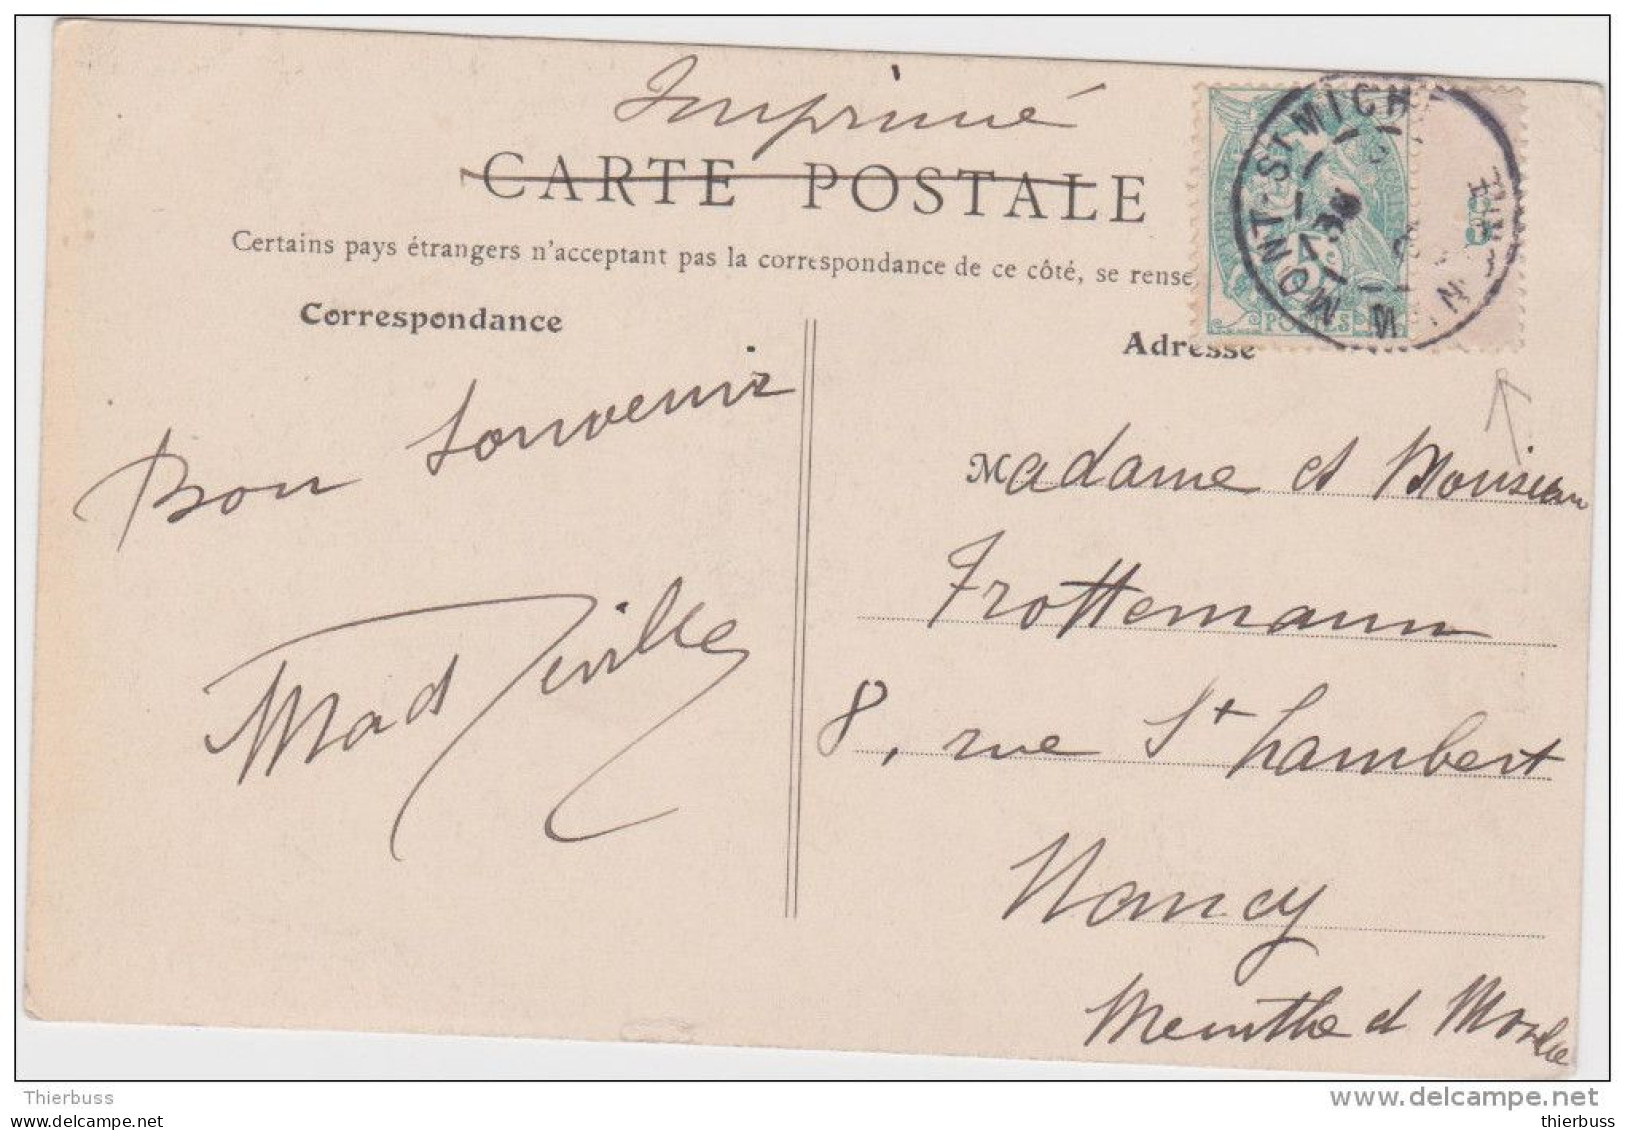 Imprimé
CARTE POSTALE
Certains pays étrangers n'acceptant pas la correspondance de ce côté, se rense
Correspondance
Adresse
MONT-ST-MICH
POSTES
Bon souvenir
Mad Deville
Madame et Monsieur
Frottemann
8, rue St Lambert
Nancy
Meurthe et Moselle
Thierbuss
www.delcampe.net
thierbuss
thierbuss